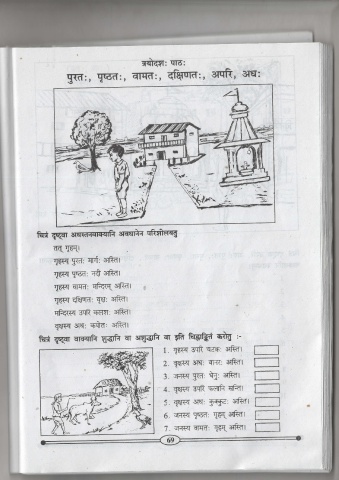 त्रयोदशः पाठः
पुरतः, पृष्ठतः, वामतः, दक्षिणतः, अपरि, अधः
चित्रं दृष्ट्वा अधस्तनवाक्यानि अवधानेन परिशीलयतु
तत् गृहम्।
गृहस्य पुरतः मार्गः अस्ति।
गृहस्य पृष्ठतः नदी अस्ति।
गृहस्य वामतः मन्दिरम् अस्ति।
गृहस्य दक्षिणतः वृक्षः अस्ति।
मन्दिरस्य उपरि कलशः अस्ति।
वृक्षस्य अधः कपोतः अस्ति।
चित्रं दृष्ट्वा वाक्यानि शुद्धानि वा अशुद्धानि वा इति चिह्नाङ्कितं करोतु :-
1. गृहस्य उपरि चटकः अस्ति।
2. वृक्षस्य अधः वानरः अस्ति।
3. जनस्य पुरतः धेनुः अस्ति।
4. वृक्षस्य उपरि फलानि सन्ति।
5. वृक्षस्य अधः कुक्कुटः अस्ति।
6. जनस्य पृष्ठतः गृहम् अस्ति।
7. जनस्य वामतः गृहम् अस्ति।
69